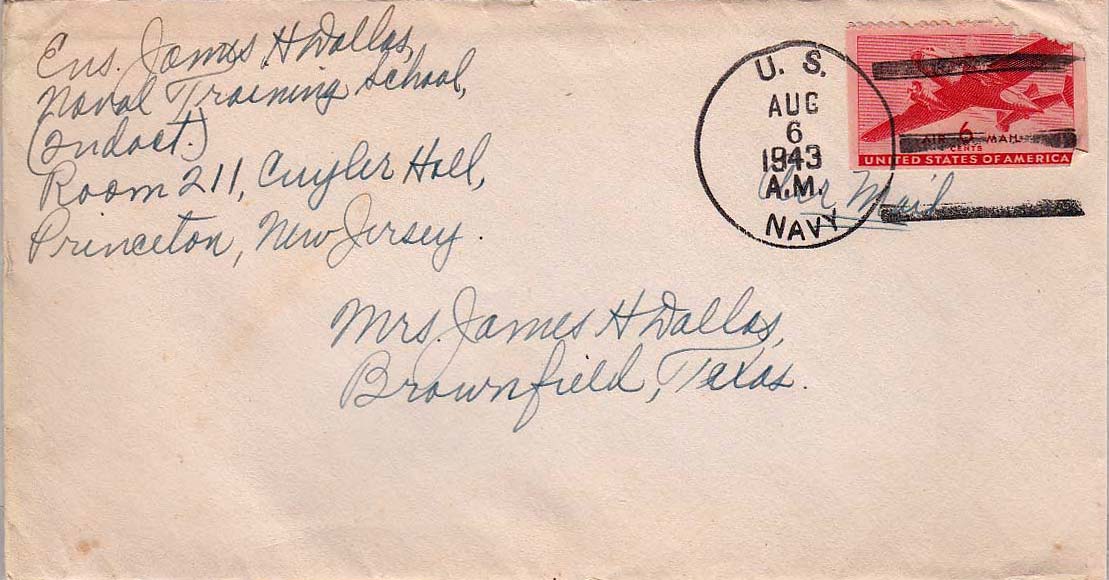 Ens. James H Dallas,
Naval Training School,
(Indoct.)
Room 211, Cuyler Hall,
Princeton, New Jersey.
U. S.
AUG
6
1943
A.M.
NAVY
AIR 6 MAIL
CENTS
UNITED STATES OF AMERICA
Air Mail
Mrs. James H Dallas,
Brownfield, Texas.